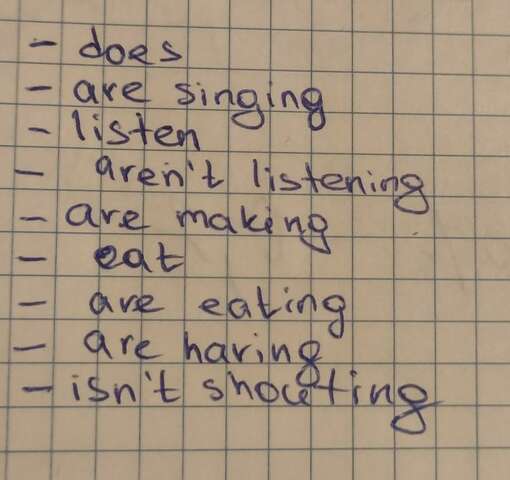 - does
- are singing
- listen
- aren't listening
- are making
- eat
- are eating
- are having
- isn't shouting